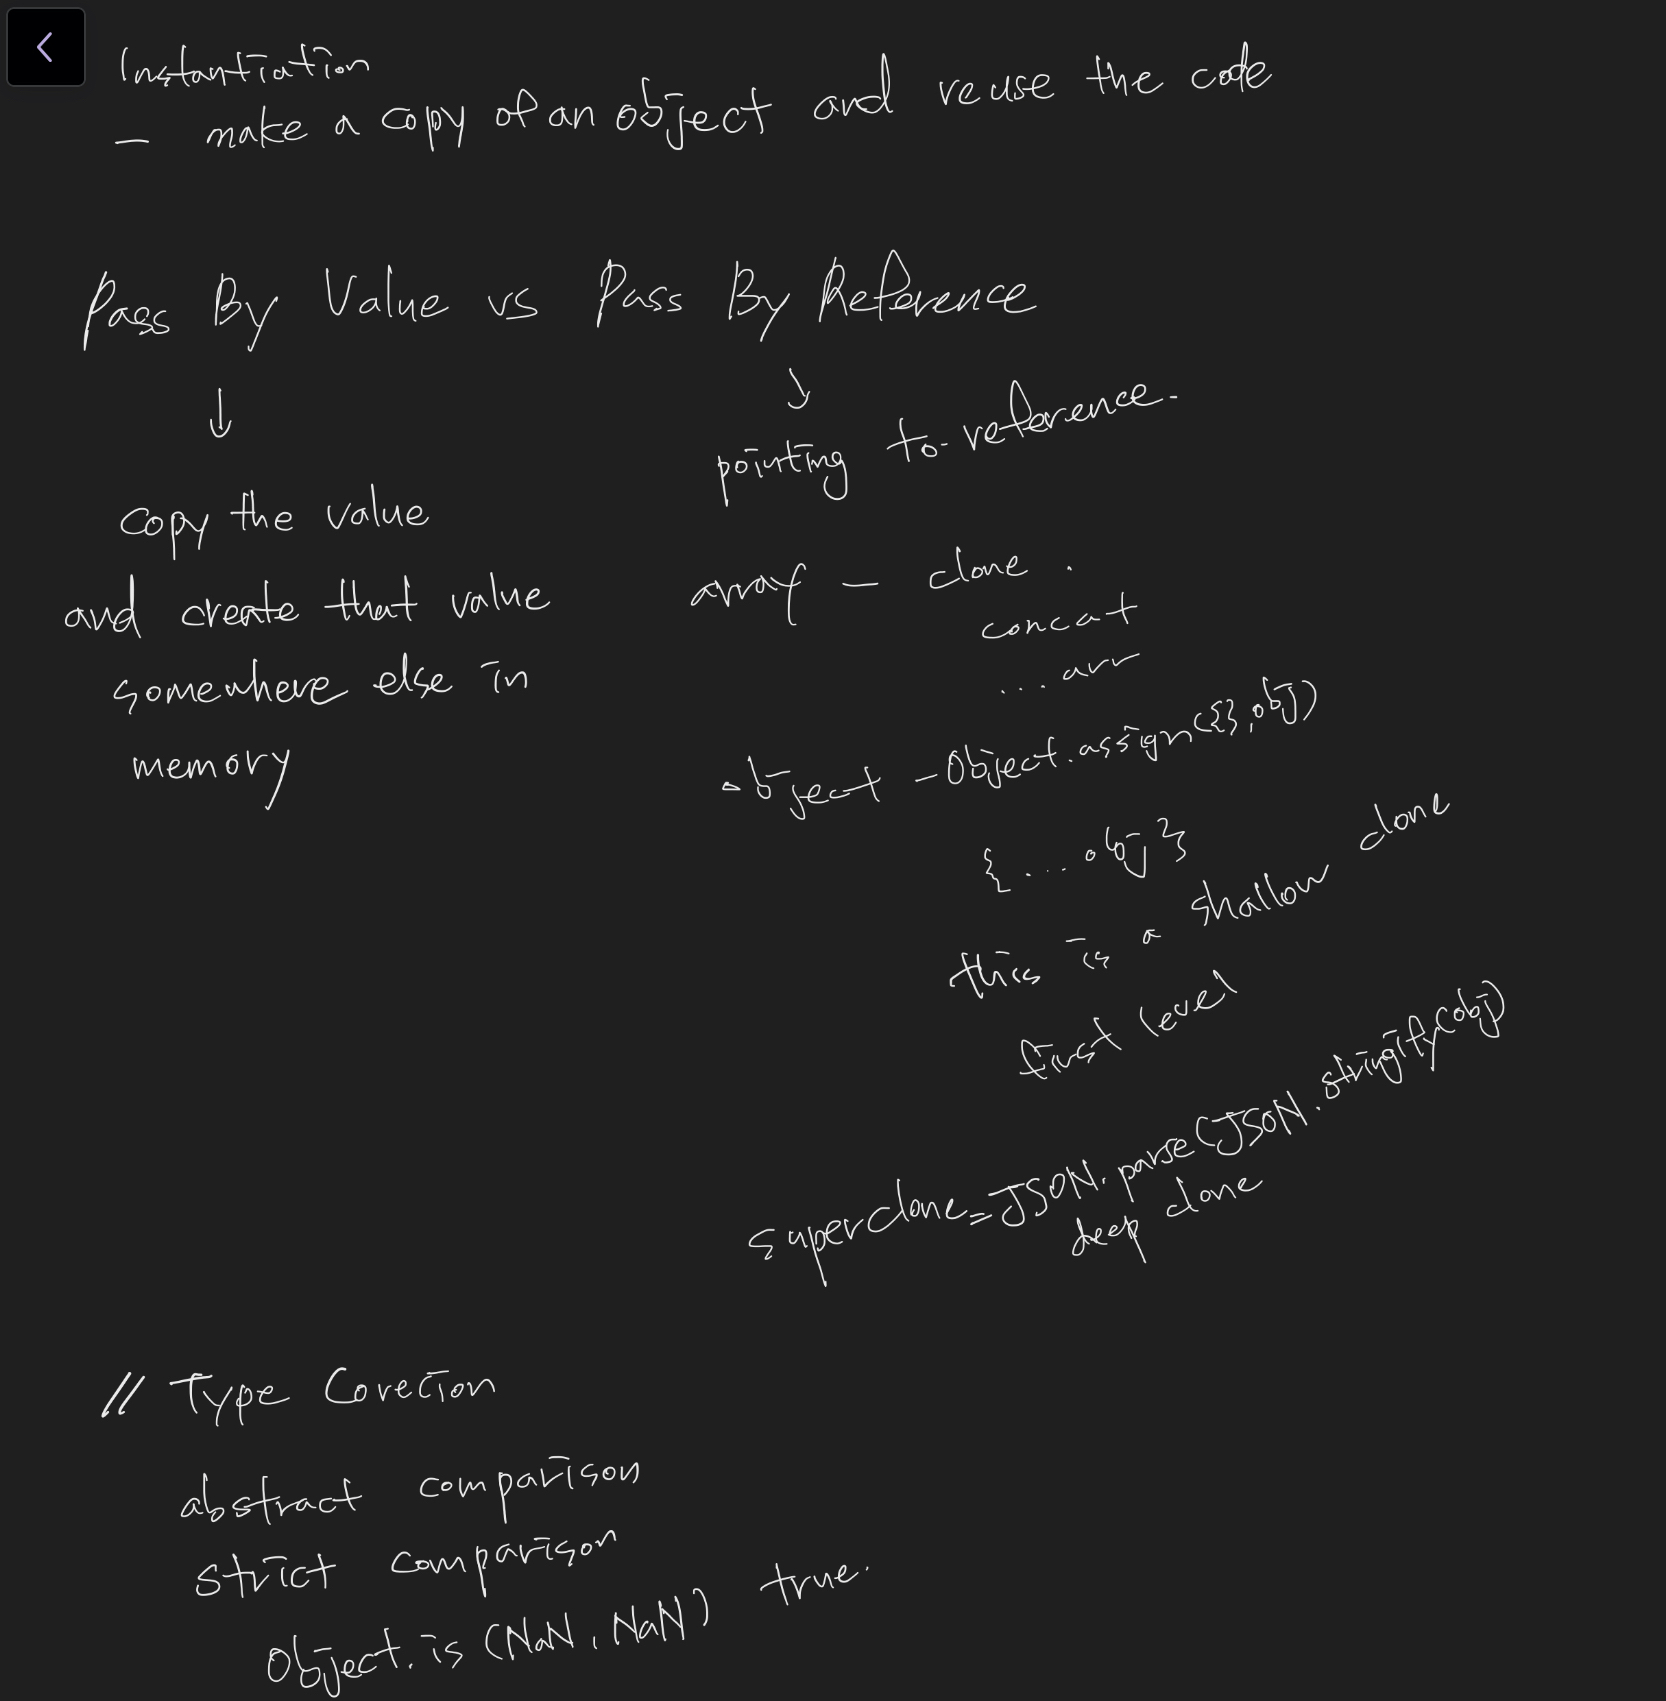 Instantiation
- make a copy of an object and reuse the code
Pass By Value vs Pass By Reference
↓
copy the value
and create that value
somewhere else in
memory
↓
pointing to reference.
array - clone.
concat
...arr
object - Object.assign({}, obj)
{...obj}
this is a shallow clone
first level
superclone = JSON.parse(JSON.stringify(obj)
deep clone
// Type Corecion
abstract comparison
strict comparison
Object.is (NaN, NaN) true.